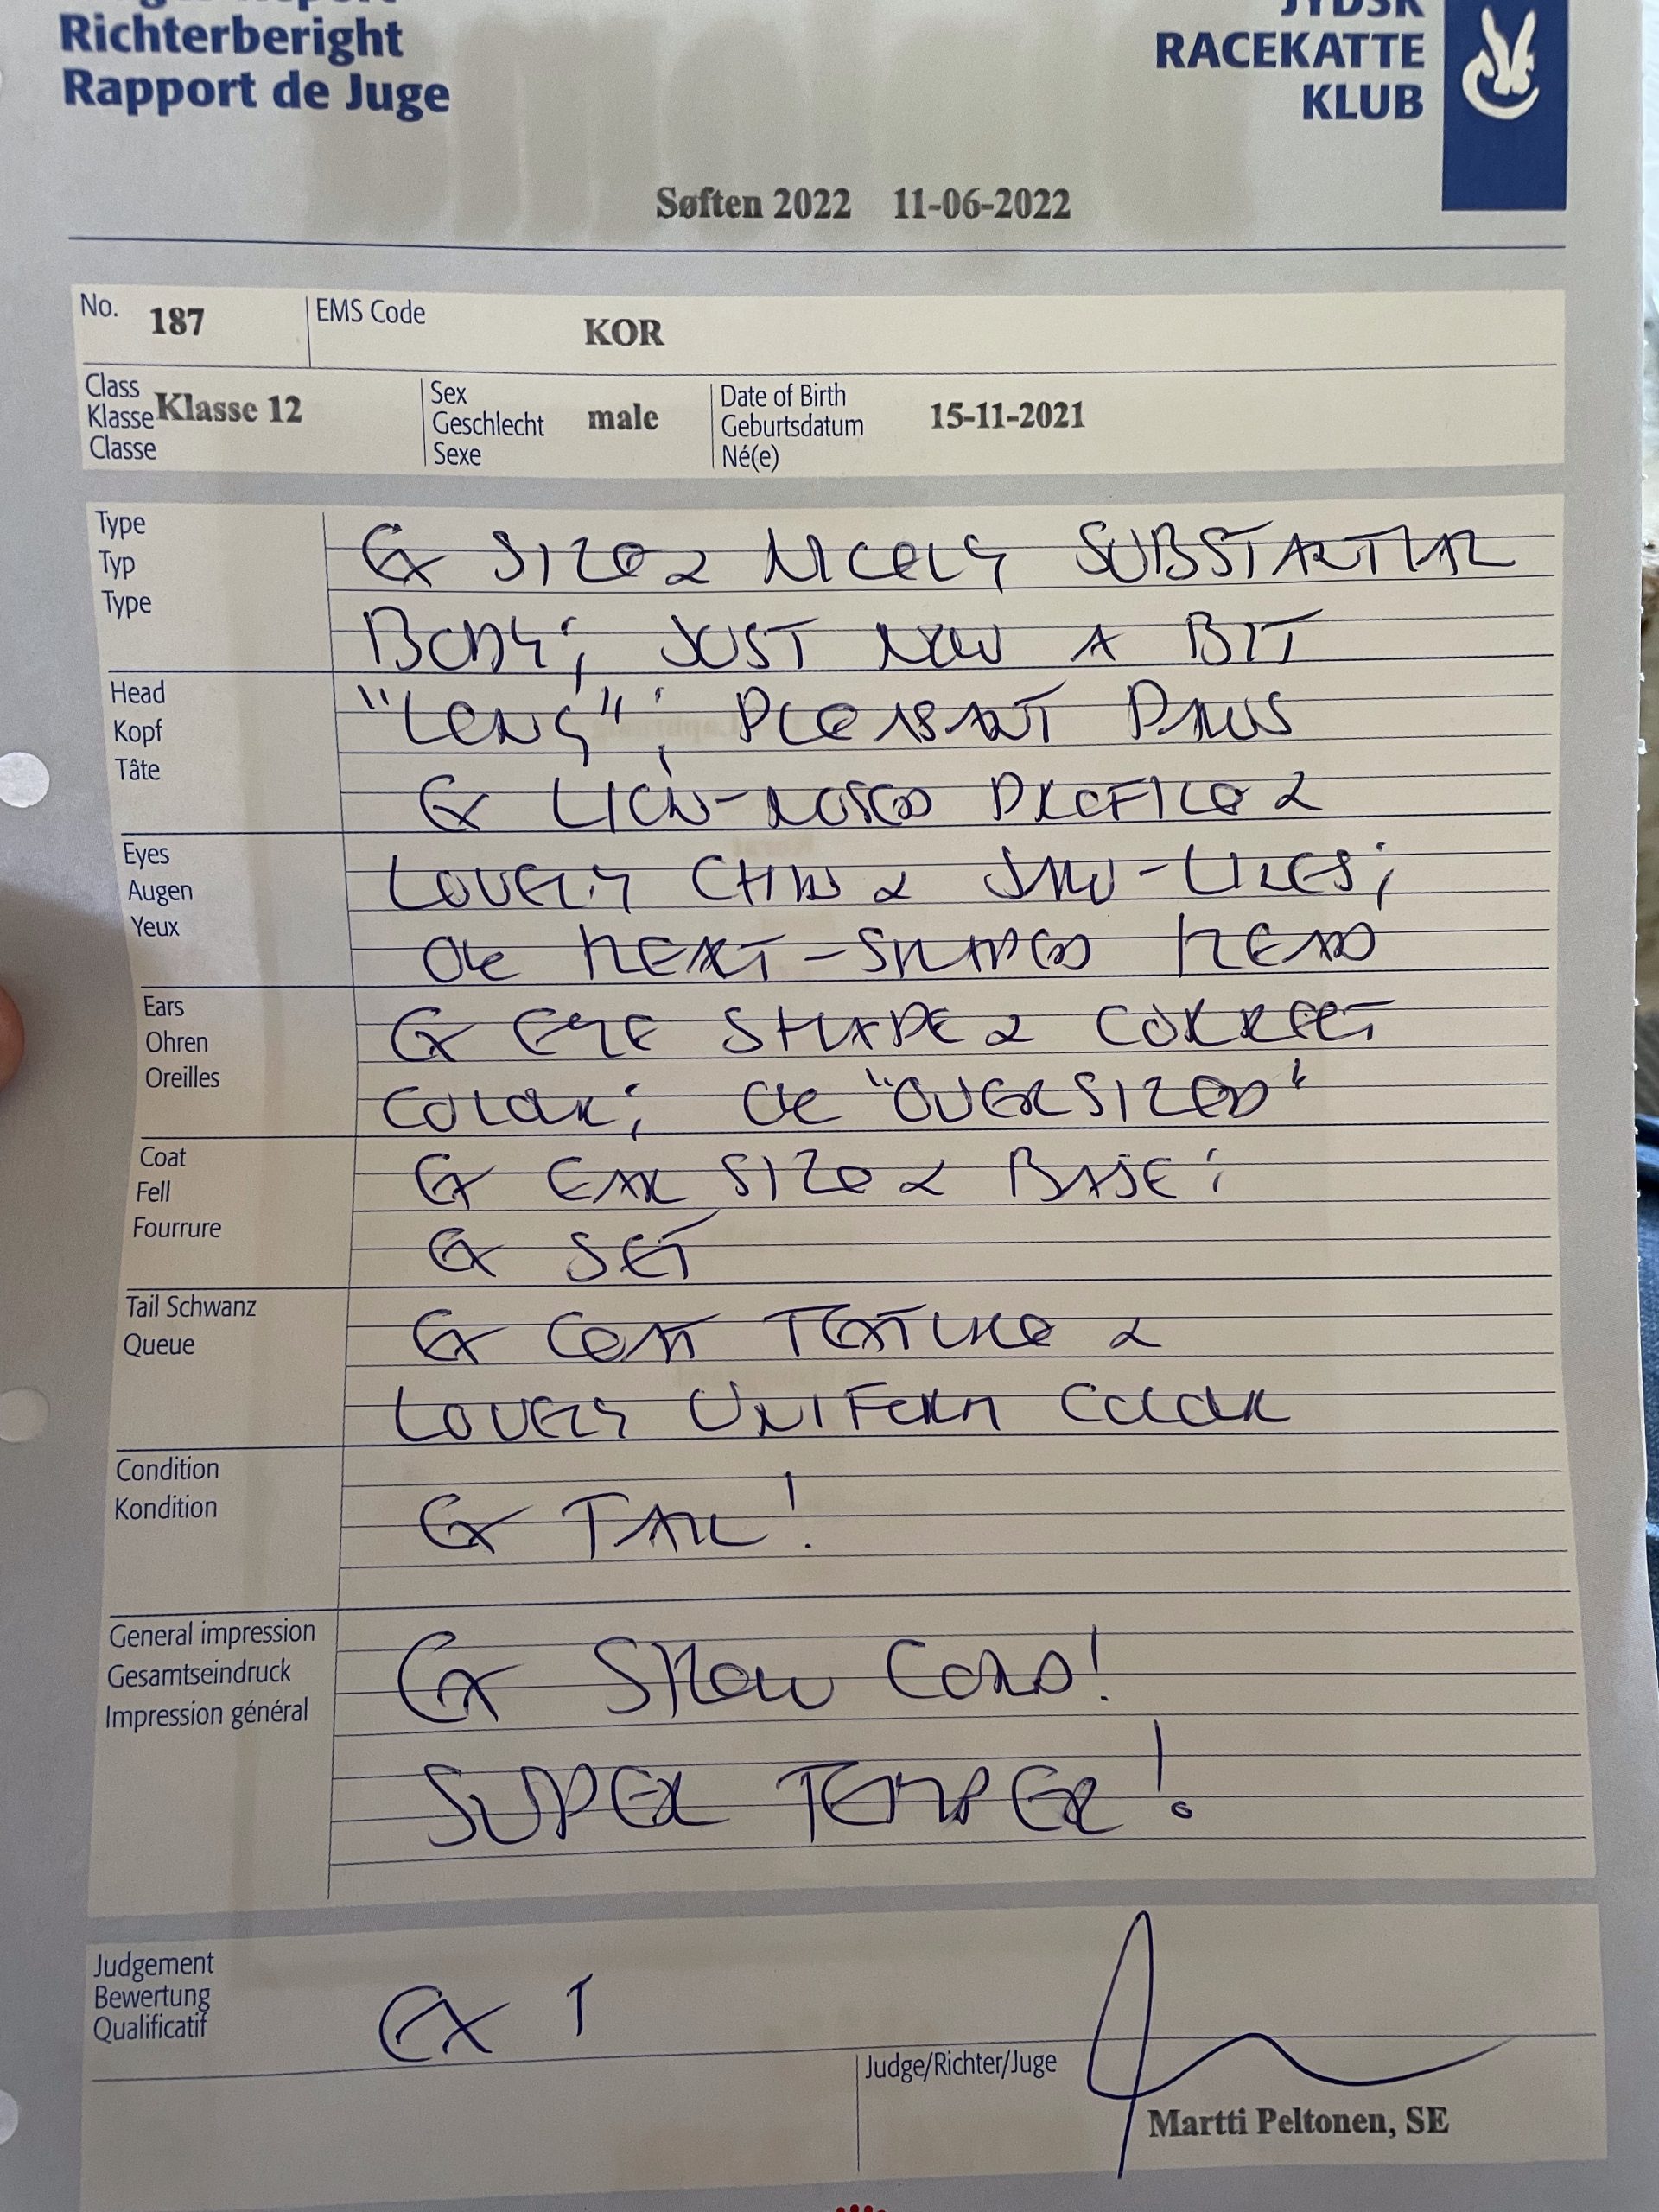 Richterberight
Rapport de Juge
JYDSK
RACEKATTE
KLUB
Søften 2022 11-06-2022
No. 187
EMS Code KOR
Class
Klasse Klasse 12
Classe
Sex
Geschlecht male
Sexe
Date of Birth
Geburtsdatum 15-11-2021
Né(e)
Type
Typ
Type
EX SIZE & NICELY SUBSTANTIAL
BODY; JUST NOW A BIT
Head
Kopf
Tâte
"LONG"; PLEASANT PAWS
EX LION-NOSED PROFILE &
Eyes
Augen
Yeux
LOVELY CHIN & JAW-LINES;
OK HEART-SHAPED HEAD
Ears
Ohren
Oreilles
EX EYE SHAPE & CORRECT
COLOUR; OK "OVERSIZED"
Coat
Fell
Fourrure
EX EAR SIZE & BASE;
EX SET
Tail Schwanz
Queue
EX COAT TEXTURE &
LOVELY UNIFORM COLOUR
Condition
Kondition
EX TAIL!
General impression
Gesamtseindruck
Impression général
EX SHOW COND!
SUPER TEMPER!
Judgement
Bewertung
Qualificatif
EX 1
Judge/Richter/Juge
Martti Peltonen, SE